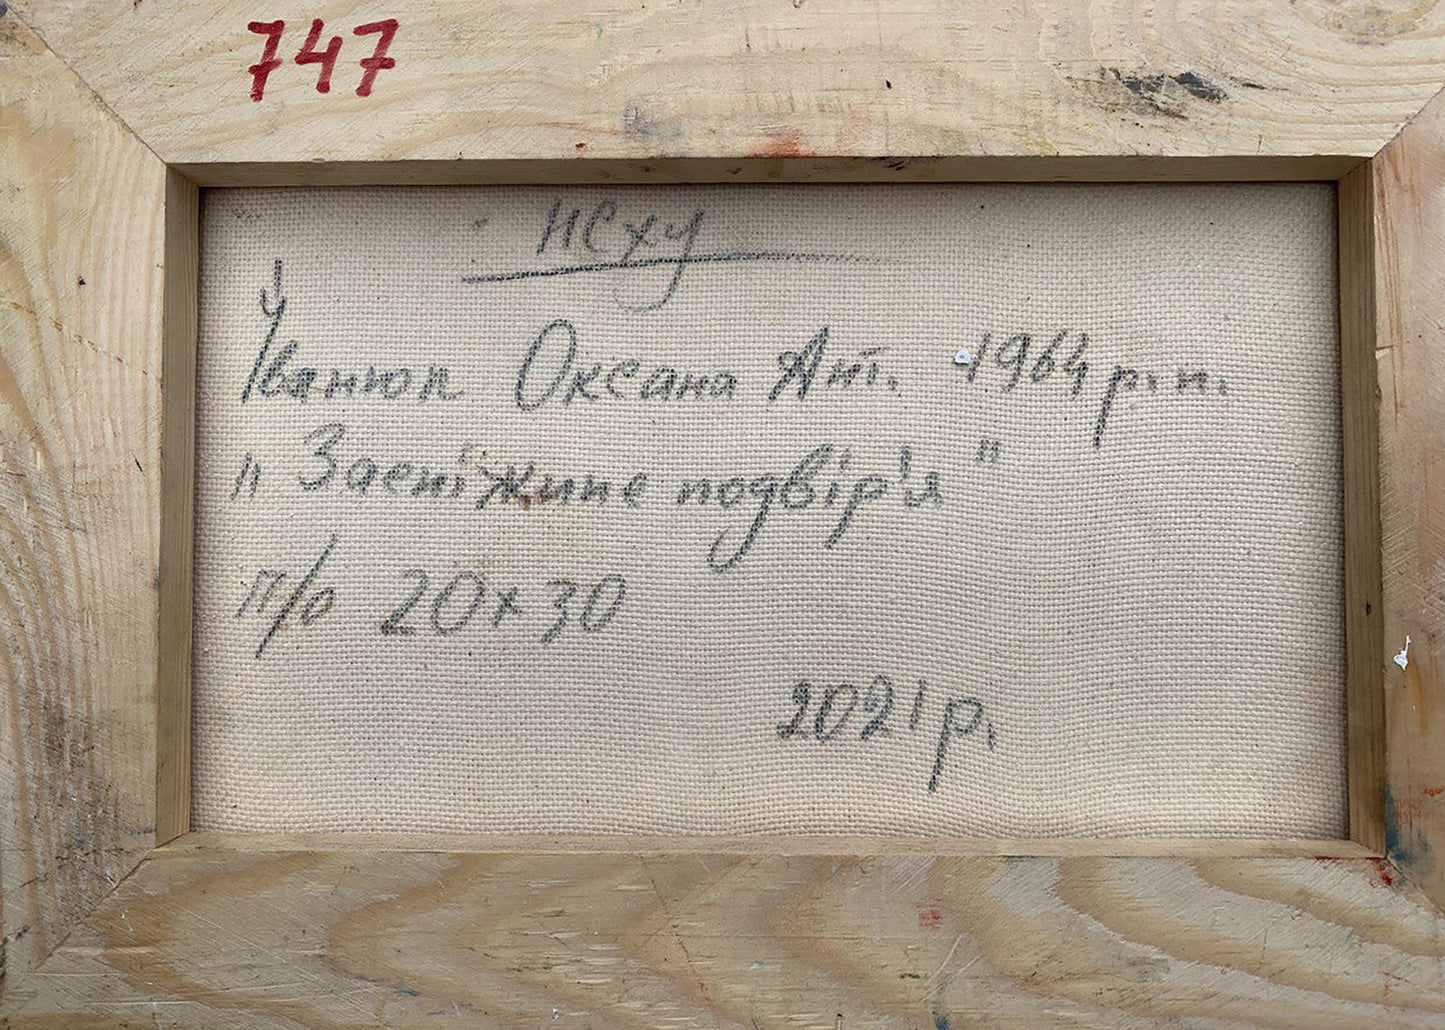 747
НСХУ
Іванюк Оксана Ан. 1964 р.н.
"Засніжине подвір'я"
п/о 20х30
2021 р.